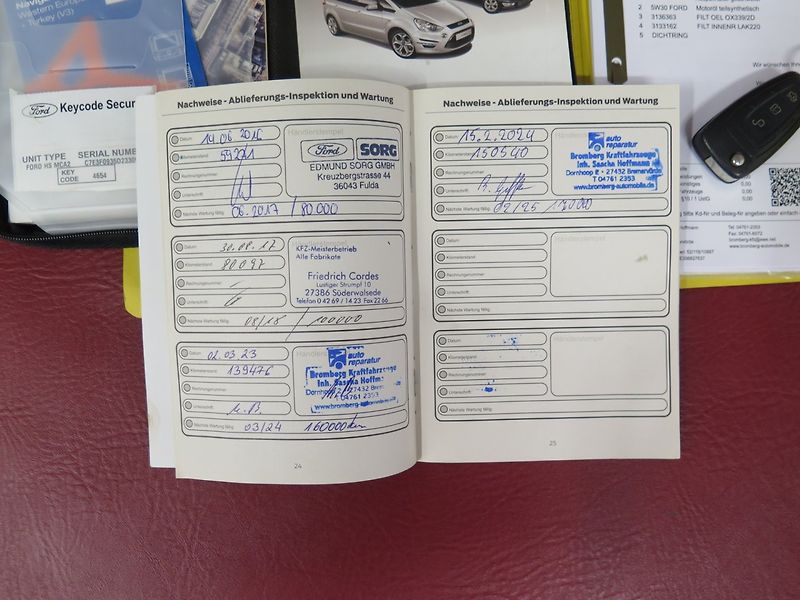 Western Europe
Turkey (V3)
Ford Keycode Secur
UNIT TYPE SERIAL NUMB
FORD HS MCA2
KEY CODE 4654
2 5W30 FORD Motoröl teilsynthetisch
3 3136363 FILT OEL OX339/2D
4 3133162 FILT INNENR LAK220
5 DICHTRING
Wir wünschen Ihn
Nachweise - Ablieferungs-Inspektion und Wartung
Datum 14.06.2016
Kilometerstand 59271
Rechnungsnummer
Unterschrift
Nächste Wartung fällig 06.2017 / 80.000
Händlerstempel
Ford SORG
EDMUND SORG GMBH
Kreuzbergstrasse 44
36043 Fulda
Datum 30.08.17
Kilometerstand 80097
Rechnungsnummer
Unterschrift
Nächste Wartung fällig 08/18 / 100000
KFZ-Meisterbetrieb
Alle Fabrikate
Friedrich Cordes
Lustiger Strumpf 10
27386 Süderwalsede
Telefon 0 42 69 / 14 23 Fax 22 66
Datum 02.03.23
Kilometerstand 139476
Rechnungsnummer
Unterschrift
Nächste Wartung fällig 03/24 160000km
auto
reparatur
Bromberg Kraftfahrzeuge
Inh. Sascha Hoffm
27432 Brem
T 04761 2353
24
Nachweise - Ablieferungs-Inspektion und Wartung
Datum 15.2.2024
Kilometerstand 150540
Rechnungsnummer
Unterschrift
Nächste Wartung fällig 02/25
Händlerstempel
auto
reparatur
Bromberg Kraftfahrzeuge
Inh. Sascha Hoffmann
Dornhoop 12 • 27432 Bremervörde
T 04761 2353
www.bromberg-automobile.de
Datum
Kilometerstand
Rechnungsnummer
Unterschrift
Nächste Wartung fällig
Händlerstempel
Datum
Kilometerstand
Rechnungsnummer
Unterschrift
Nächste Wartung fällig
Händlerstempel
25